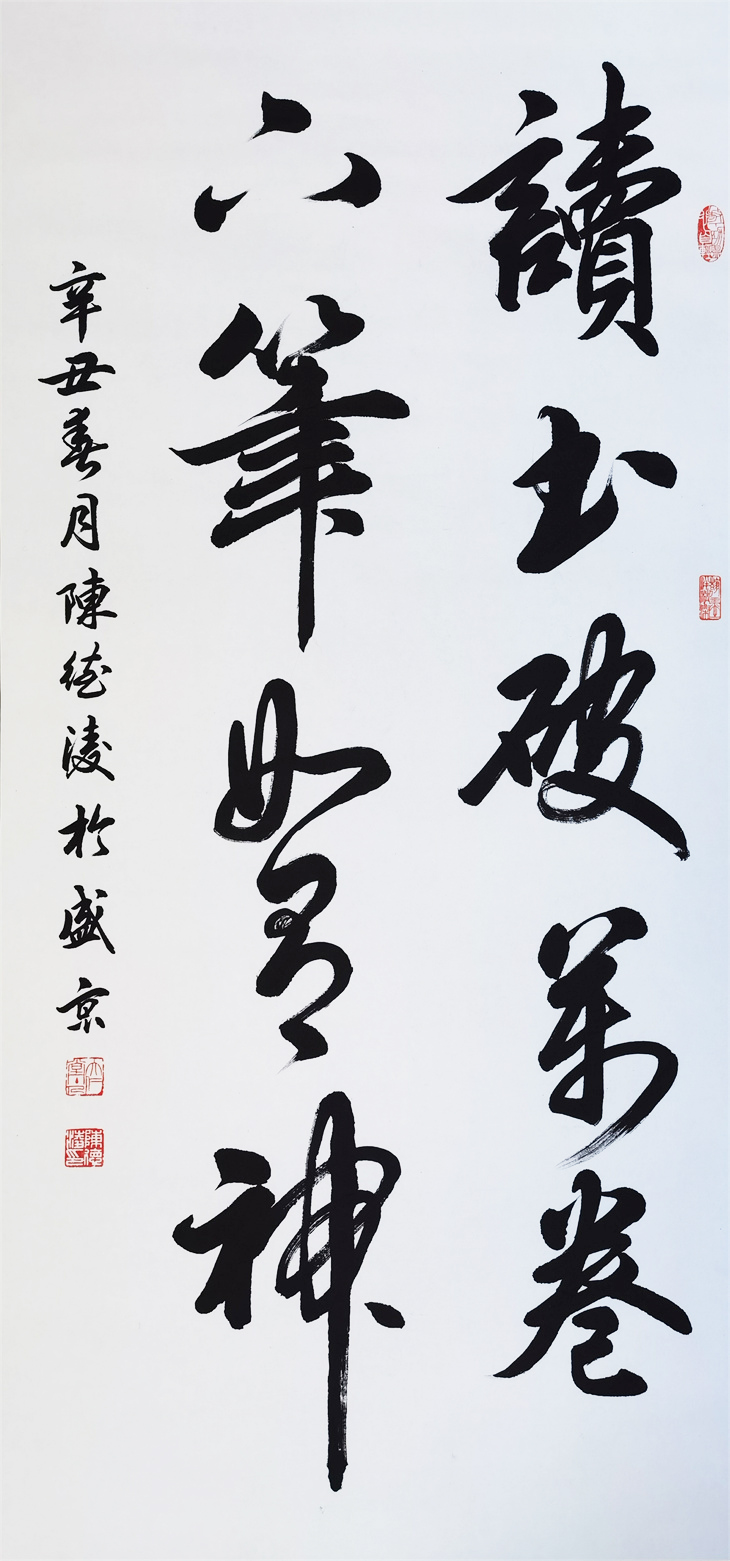 讀書破萬卷
下筆如有神
辛丑春月陳德凌於盛京